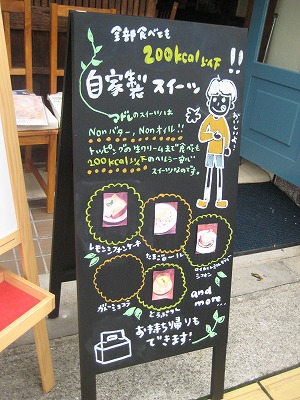 全部食べても
200kcal以下!!
自家製 スイーツ
のスイーツは
Nonバター, Nonオイル!!
トッピングの生クリームまで食べても
200kcal以下のヘルシー安心
スイーツなのです。
おいしいよ
レモンシフォンケーキ
たまごロール
シフォン
ガトーショコラ
どらぷりん
and
more...
お持ち帰りも
できます!